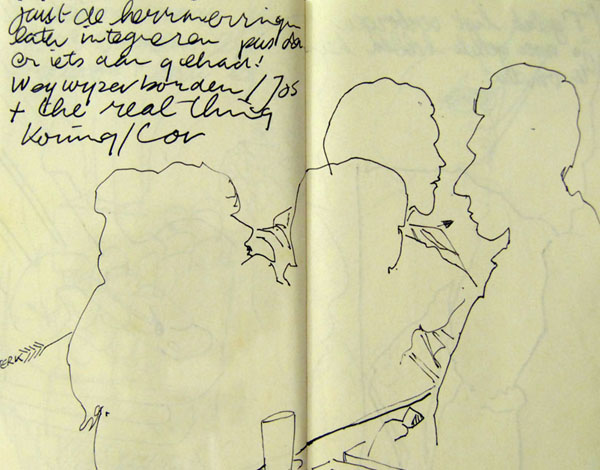 juist de herinneringen
later integreren pas dan
er iets aan gehad!
Wegwyzerborden / Jos
+ the real thing
Koning/Cor
ERK